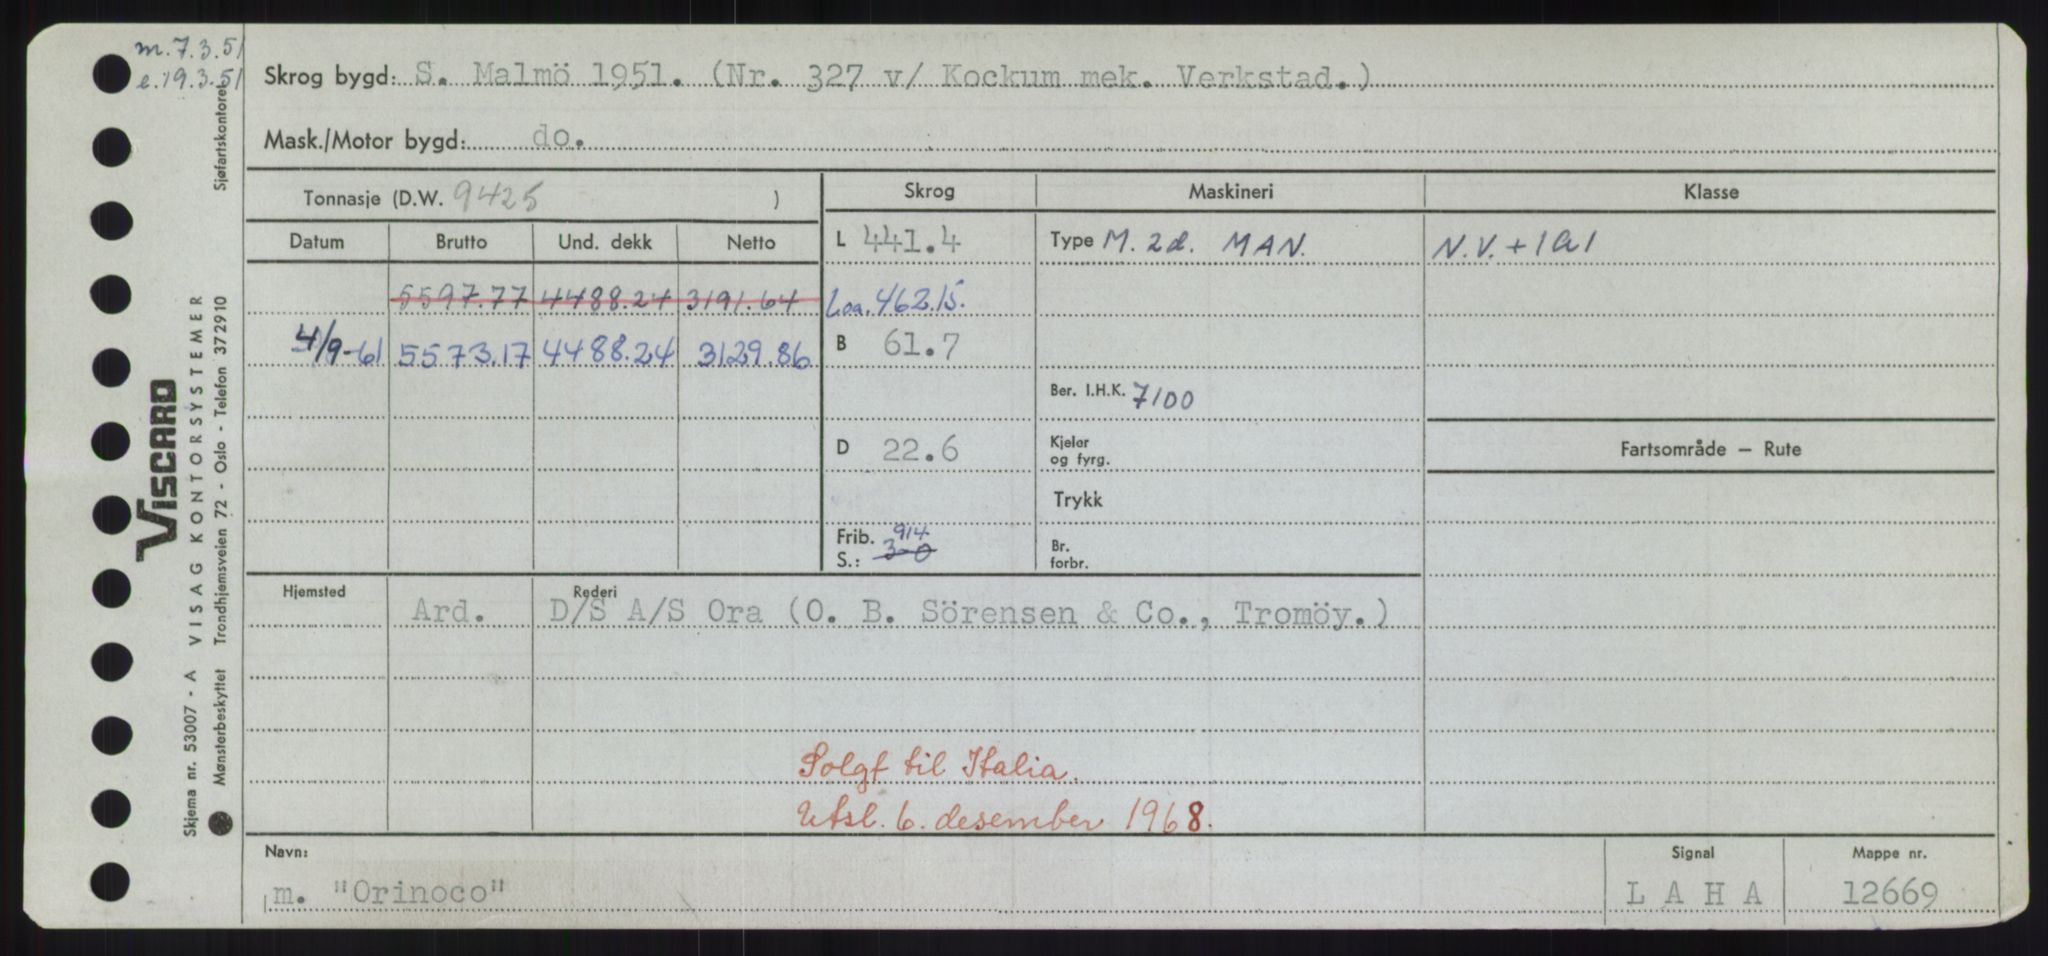 m. 7.3.51
e. 19.3.51
Skrog bygd: S. Malmö 1951. (Nr. 327 v/ Kockum mek. Verkstad.)
Mask./Motor bygd: do.
Tonnasje (D.W. 9425 )
Skrog Maskineri Klasse
Datum Brutto Und. dekk Netto
L 441.4 Type M. 2d. MAN. N.V. + 1A1
5597.77 4488.24 3191.64 Loa. 462.15.
4/9-61 5573.17 4488.24 3129.86 B 61.7
Ber. I.H.K. 7100
D 22.6 Kjeler og fyrg. Fartsområde – Rute
Trykk
Frib. S.: 914 300 Br. forbr.
Hjemsted Rederi
Ard. D/S A/S Ora (O. B. Sörensen & Co., Tromöy.)
Solgt til Italia.
Utsl. 6. desember 1968.
Navn: Signal Mappe nr.
m. "Orinoco" L A H A 12669
VISCARD
Skjema nr. 53007 - A VISAG KONTORSYSTEMER Sjøfartskontoret
Mønsterbeskyttet Trondhjemsveien 72 - Oslo - Telefon 372910